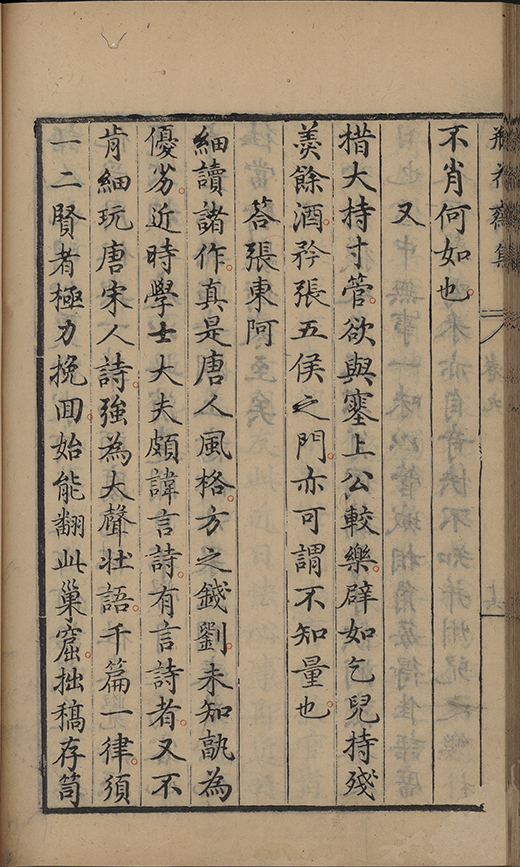 瓶花齋集
卷九
不肖何如也
又
措大持寸管欲與塞上公較樂辟如乞兒持殘
羹餘酒矜張五侯之門亦可謂不知量也
答張東阿
細讀諸作真是唐人風格方之錢劉未知孰為
優劣近時學士大夫頗諱言詩有言詩者又不
肯細玩唐宋人詩強為大聲壯語千篇一律須
一二賢者極力挽回始能翻此巢窟拙稿存笥